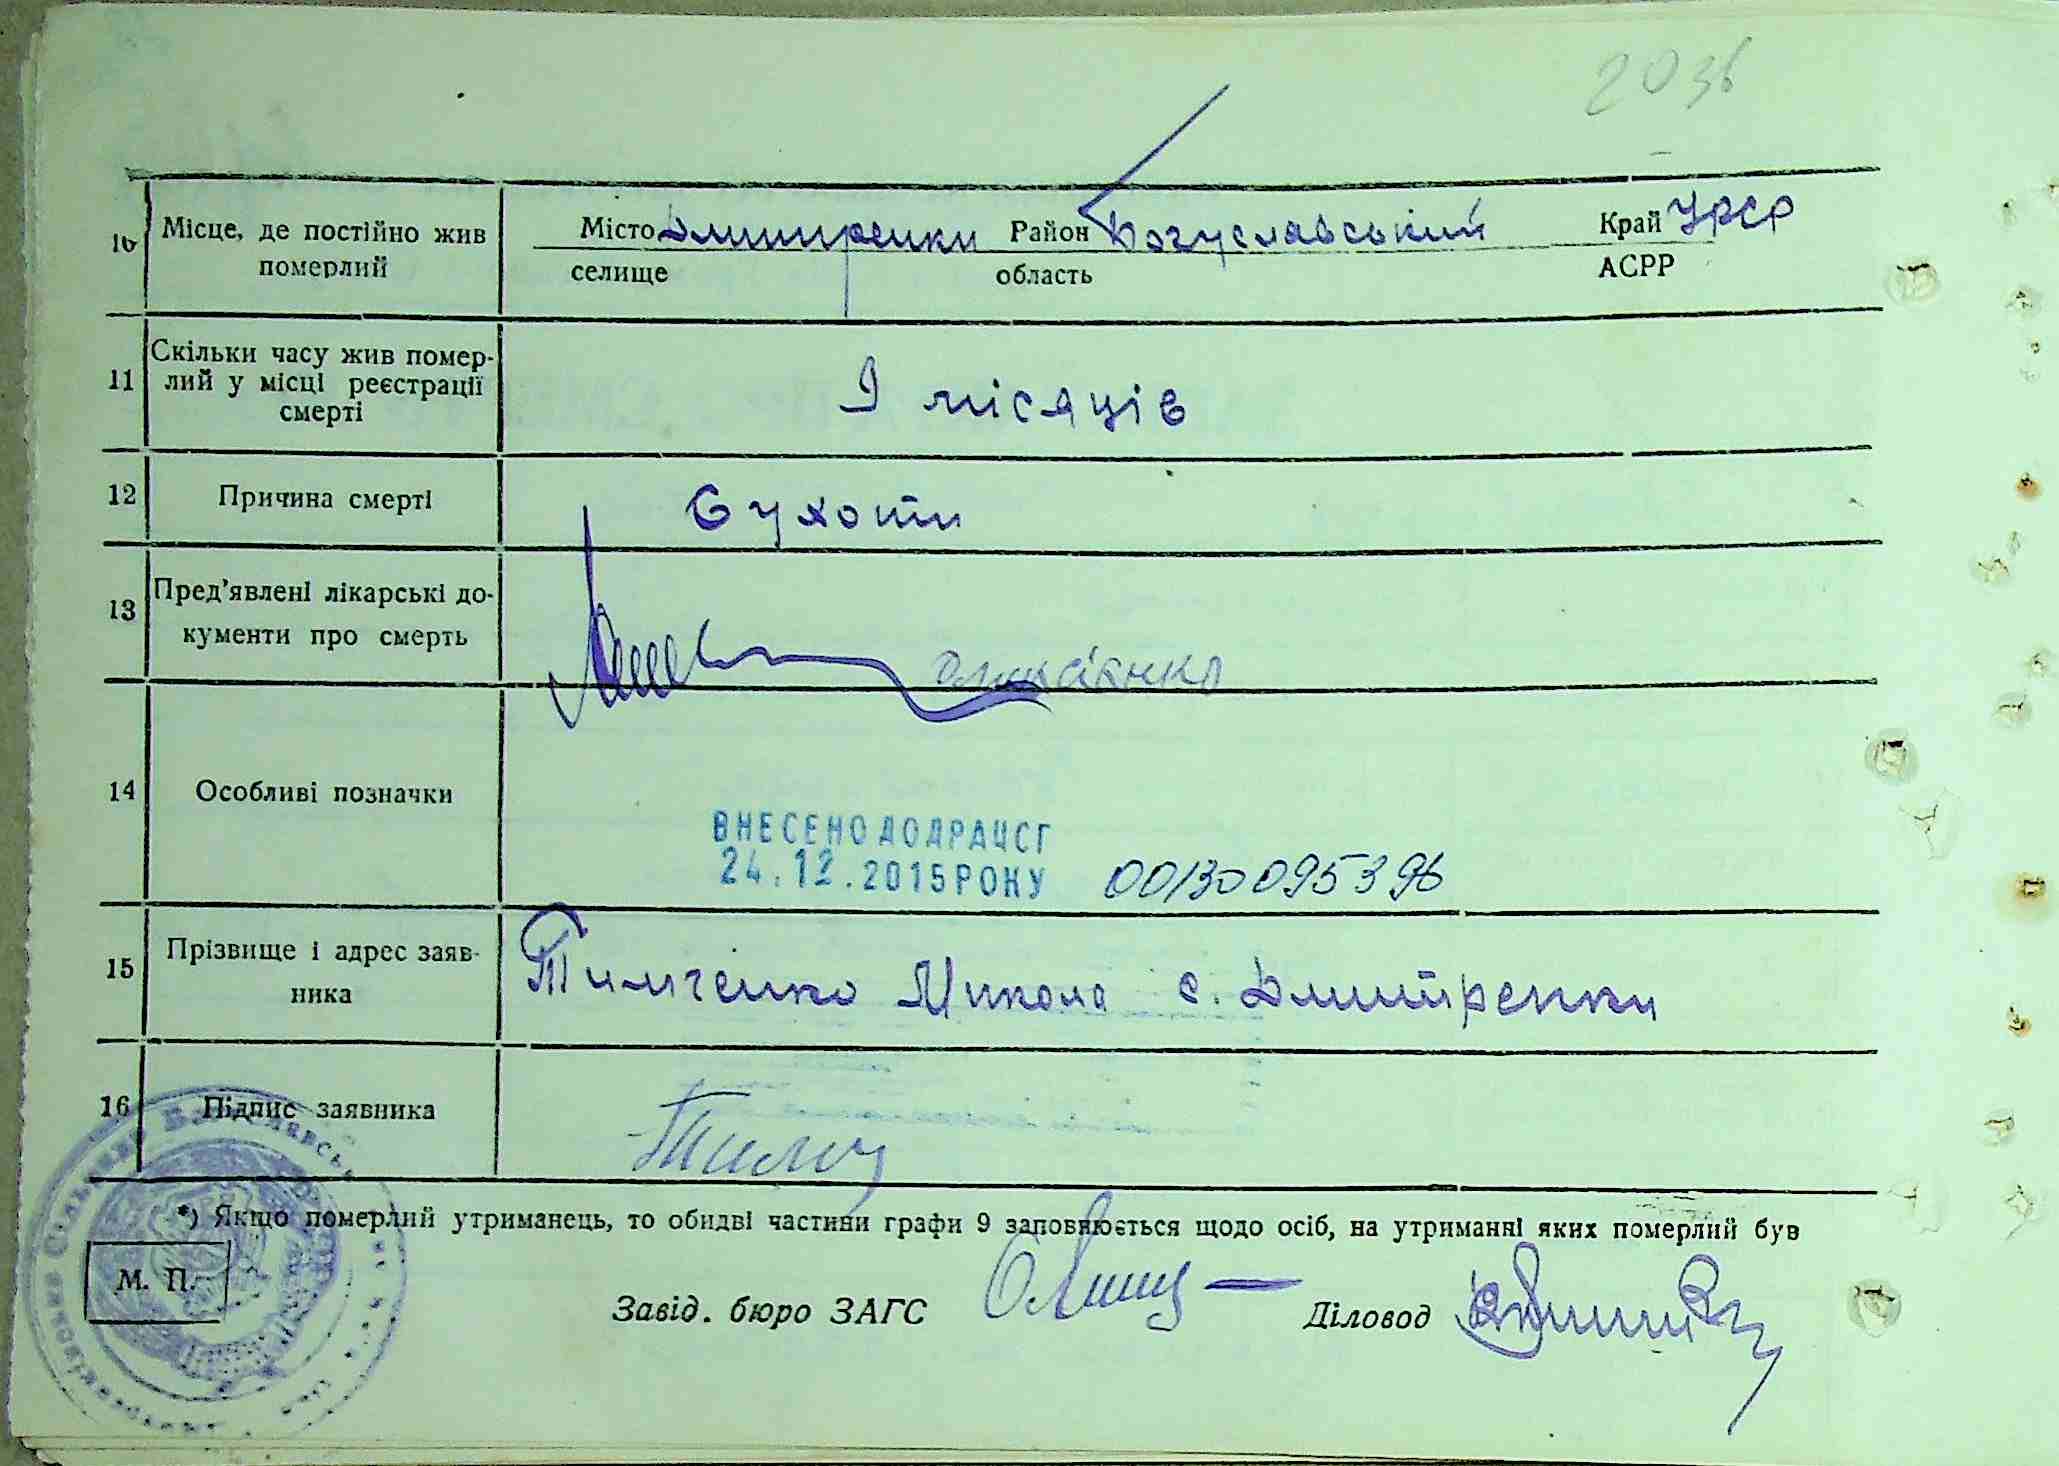 203б
10 Місце, де постійно жив померлий
Місто Дмитренки Район Богуславський Край УРСР
селище область АСРР
11 Скільки часу жив помер-
лий у місці реєстрації
смерті
9 місяців
12 Причина смерті Сухоти
13 Пред'явлені лікарські до-
кументи про смерть
14 Особливі позначки
ВНЕСЕНО ДО ДРАЦСГ
24.12.2015 РОКУ 00130095396
15 Прізвище і адрес заяв-
ника
Тимченко Микола с. Дмитренки
16 Підпис заявника Тимч
*) Якщо померлий утриманець, то обидві частини графи 9 заповнюється щодо осіб, на утриманні яких померлий був
М. П.
Завід. бюро ЗАГС Діловод